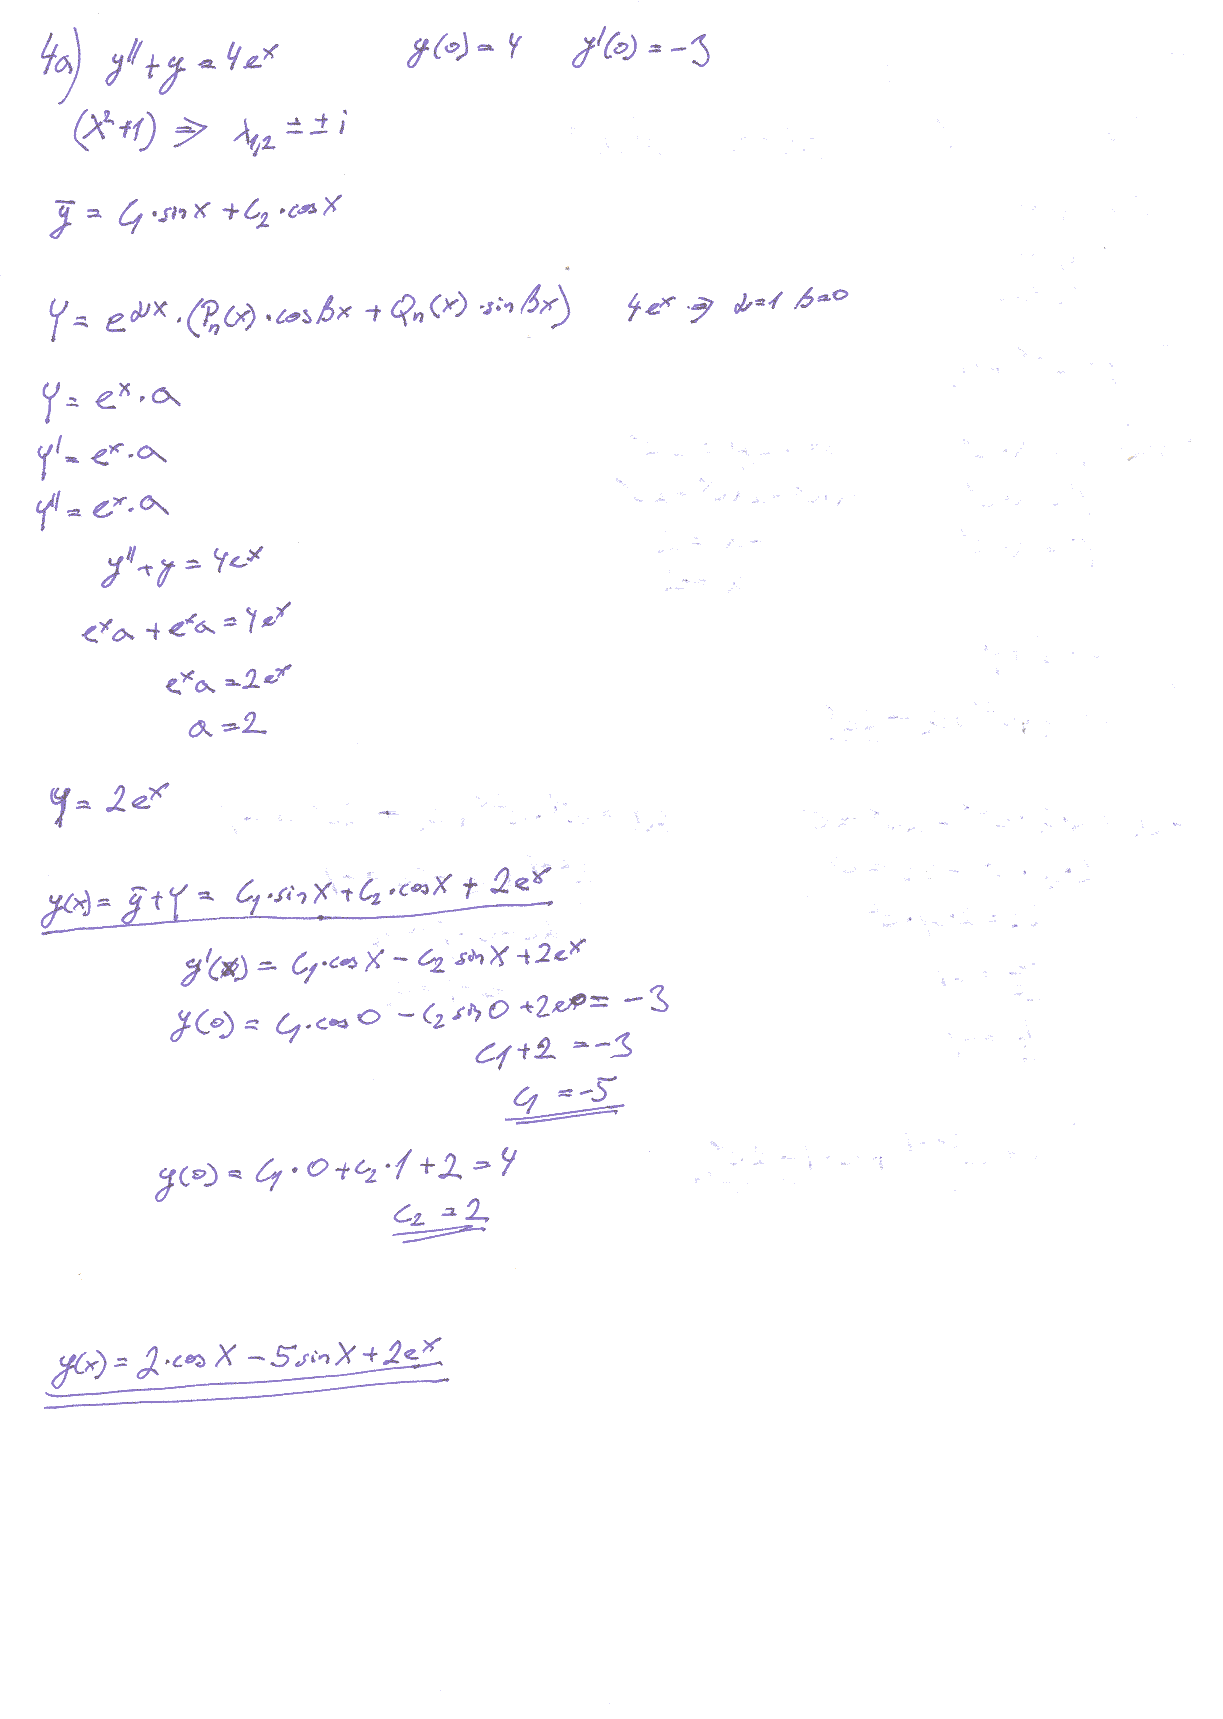 4a) y'' + y = 4e^x    y(0) = 4    y'(0) = -3
(λ²+1) ⇒ λ₁,₂ = ± i
ȳ = C₁·sin x + C₂·cos x
Y = e^αx·(Pₙ(x)·cos βx + Qₙ(x)·sin βx)    4e^x ⇒ α=1 β=0
Y = e^x·a
Y' = e^x·a
Y'' = e^x·a
y'' + y = 4e^x
e^x a + e^x a = 4e^x
e^x a = 2e^x
a = 2
Y = 2e^x
y(x) = ȳ + Y = C₁·sin x + C₂·cos x + 2e^x
y'(x) = C₁·cos x - C₂ sin x + 2e^x
y(0) = C₁·cos 0 - C₂ sin 0 + 2e^0 = -3
C₁ + 2 = -3
C₁ = -5
y(0) = C₁·0 + C₂·1 + 2 = 4
C₂ = 2
y(x) = 2·cos x - 5 sin x + 2e^x